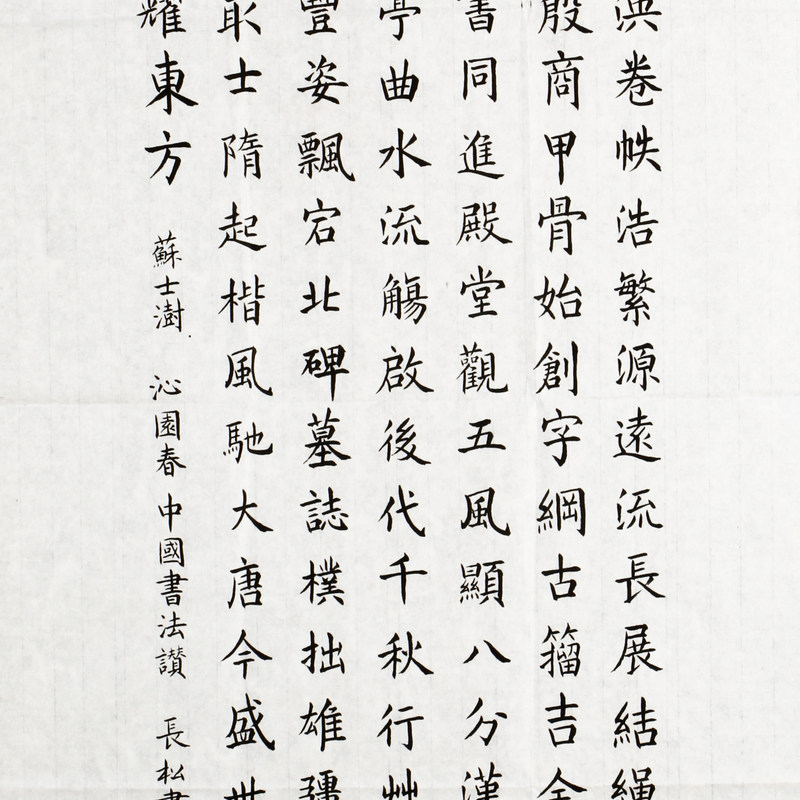 洪卷帙浩繁源遠流長展結繩
殷商甲骨始創字綱古籀吉金
書同進殿堂觀五風顯八分漢
亭曲水流觴啟後代千秋行艸
豐姿飄宕北碑墓誌樸拙雄疆
取士隋起楷風馳大唐今盛世
耀東方
蘇士澍 沁園春 中國書法讚 長松書